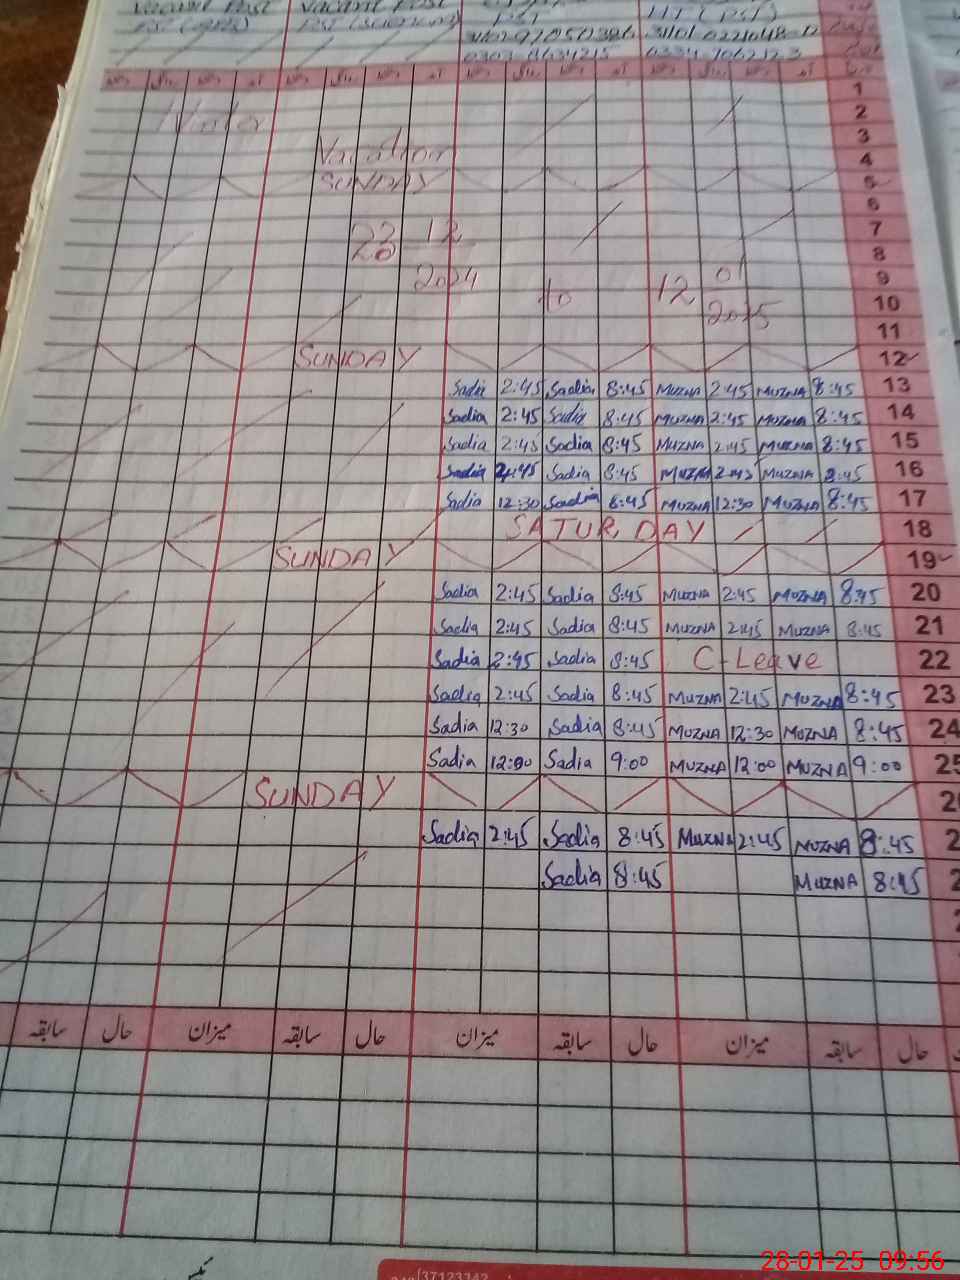 Vacant Post Vacant Post
PST PST HT (PST)
1
2
Winter
3
Vacation 4
SUNDAY 5
6
7
23 12 8
2024 01 9
to 12 10
2025
11
SUNDAY 12
Sadia 2:45 Sadia 8:45 MUZNA 2:45 MUZNA 8:45 13
Sadia 2:45 Sadia 8:45 MUZNA 2:45 MUZNA 8:45 14
Sadia 2:45 Sadia 8:45 MUZNA 2:45 MUZNA 8:45 15
Sadia 2:45 Sadia 8:45 MUZNA 2:45 MUZNA 8:45 16
Sadia 12:30 Sadia 8:45 MUZNA 12:30 MUZNA 8:45 17
SATURDAY 18
SUNDAY 19
Sadia 2:45 Sadia 8:45 MUZNA 2:45 MUZNA 8:45 20
Sadia 2:45 Sadia 8:45 MUZNA 2:45 MUZNA 8:45 21
Sadia 2:45 Sadia 8:45 C-Leave 22
Sadia 2:45 Sadia 8:45 MUZNA 2:45 MUZNA 8:45 23
Sadia 12:30 Sadia 8:45 MUZNA 12:30 MUZNA 8:45 24
Sadia 12:00 Sadia 9:00 MUZNA 12:00 MUZNA 9:00 25
SUNDAY 2
Sadia 2:45 Sadia 8:45 MUZNA 2:45 MUZNA 8:45 2
Sadia 8:45 MUZNA 8:45 2
حال سابقہ میزان حال سابقہ میزان حال سابقہ میزان حال سابقہ
37123342
28-01-25 09:56